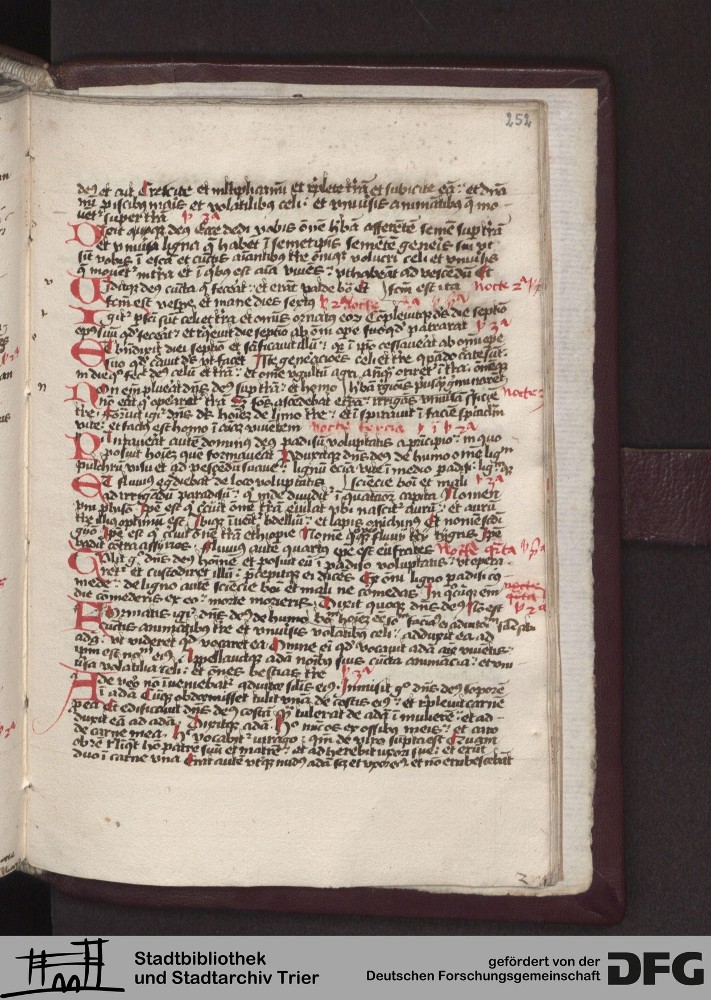 252
deus et ait Crescite et multiplicamini et replete terram et subicite eam : et domina
mini piscibus maris et volatilibus celi : et universis animantibus que mo-
ventur super terram
Dixit quoque deus Ecce dedi vobis omnem herbam afferentem semen super terram
et universa ligna que habent in semetipsis sementem generis sui ut
sint vobis in escam et cunctis animantibus terre omnique volucri celi et universis
que moventur in terra et in quibus est anima vivens : ut habeant ad vescendum Et
deus cuncta que fecerat : et erant valde bona Et factum est ita Nocte
factum est vespere et mane dies sextus
Igitur perfecti sunt celi et terra et omnis ornatus eorum Complevitque deus die septimo
opus suum quod fecerat : et requievit die septimo ab omni opere suo quod patrarat
Et benedixit diei septimo et sanctificavit illum : quia in ipso cessaverat ab omni opere
suo quod creavit deus ut faceret Iste generaciones celi et terre quando create sunt
in die quo fecit deus celum et terram : et omne virgultum agri antequam oriretur in terra : omnemque
Non enim pluerat dominus deus super terram : et homo herbam regionis priusquam germinaret
non erat qui operaretur terram Sed fons ascendebat e terra : irrigans universam superficiem Nocte
terre : Formavit igitur dominus deus hominem de limo terre : et inspiravit in faciem spiraculum
vite : et factus est homo in animam viventem nocte tercia
Plantaverat autem dominus deus paradisum voluptatis a principio : in quo
posuit hominem quem formaverat Produxitque dominus deus de humo omne lignum
pulchrum visu et ad vescendum suave : lignum eciam vite in medio paradisi : lignumque
Et fluvius egrediebatur de loco voluptatis sciencie boni et mali
ad irrigandum paradisum : qui inde dividitur in quatuor capita Nomen
uni phison Ipse est qui circuit omnem terram evilat ubi nascitur aurum : et aurum
terre illius optimum est Ibique invenitur bdellium : et lapis onichinus Et nomen secundi
gyon Ipse est qui circuit omnem terram ethiopie Nomen fluvii tercii tygris Ipse
vadit contra assyrios : Fluvius autem quartus ipse est eufrates Nocte
Tulit ergo dominus deus hominem et posuit eum in paradiso voluptatis : ut opera-
retur et custodiret illum : precepitque ei dicens Ex omni ligno paradisi co-
mede : de ligno autem sciencie boni et mali ne comedas In quocumque enim nocte
die comederis ex eo : morte morieris Dixit quoque dominus deus Non est
Formatis igitur dominus deus de humo bonum hominem esse solum faciamus ei adiutorium simile sibi
cunctis animantibus terre et universis volatilibus celi : adduxit ea ad
adam : ut videret quid vocaret ea Omne enim quod vocavit adam anime viventis :
ipsum est nomen eius Appellavitque adam nominibus suis cuncta animancia : et uni
versa volatilia celi : et omnes bestias terre
Ade vero non inveniebatur adiutor similis eius Inmisit ergo dominus deus soporem
in adam Cumque obdormisset tulit unam de costis eius : et replevit carnem
pro ea Et edificavit dominus deus costam quam tulerat de adam in mulierem : et ad-
duxit eam ad adam Dixitque adam Hoc nunc os ex ossibus meis : et caro
de carne mea Hec vocabitur virago : quoniam de viro sumpta est Quam
ob rem relinquet homo patrem suum et matrem : et adherebit uxori sue : et erunt
duo in carne una Erat autem uterque nudus adam scilicet et uxor eius et non erubescebant
Stadtbibliothek
und Stadtarchiv Trier
gefördert von der
Deutschen Forschungsgemeinschaft
DFG